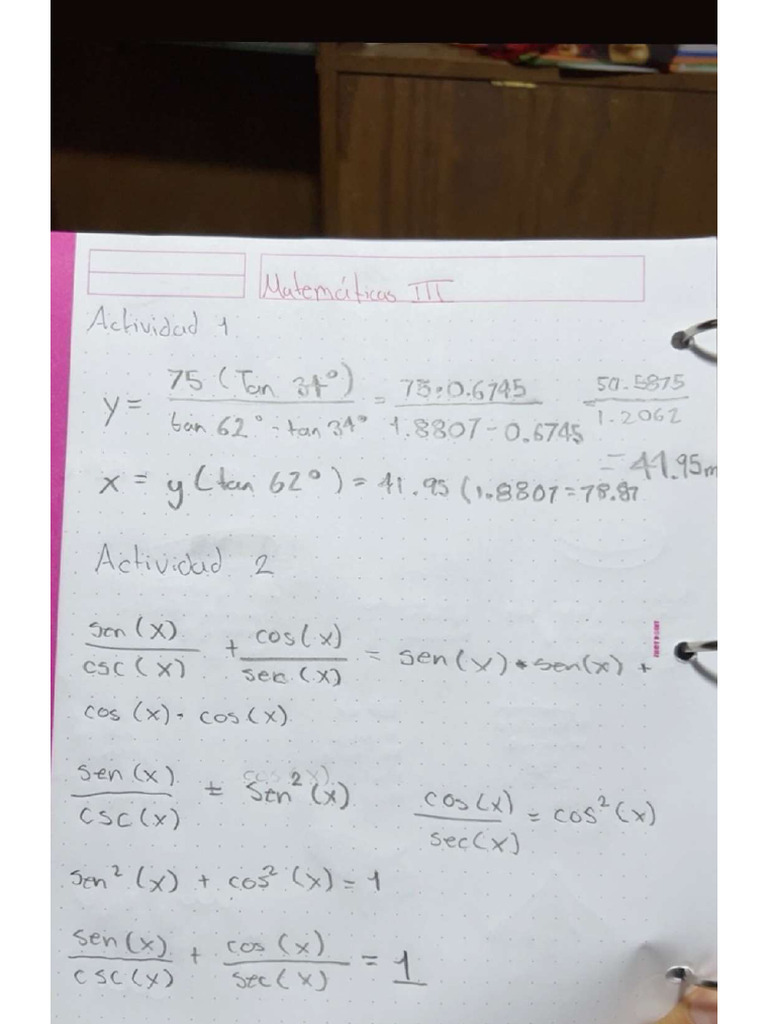 Matemáticas III
Actividad 1
y = 75 (Tan 34°) / tan 62° - tan 34° = 75·0.6745 / 1.8807 - 0.6745 50.5875 / 1.2062
= 41.95m
x = y (tan 62°) = 41.95 (1.8807 = 78.87
Actividad 2
sen (x) / csc (x) + cos (x) / sec (x) = sen (x) • sen(x) +
cos (x) · cos (x)
sen (x) / csc (x) = sen² (x) cos (x) / sec (x) = cos² (x)
sen² (x) + cos² (x) = 1
sen (x) / csc (x) + cos (x) / sec (x) = 1